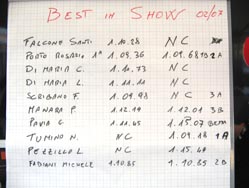 BEST in SHOW 02/03
FALCONE SANT. 1.10.28 NC
PORTO ROSARIO 1ª 1.09.36 1.09.68
DI MARIA C. 1.11.73 NC
DI MARIA L. 1.11.11 NC
SCRIBANO F. 1.09.98 NC 3A
MANARA P. 1.12.19 1.12.01 3B
PAVIA G. 1.11.45
TUMINO N. NC 1.09.18 1A
PEZZILLO L. NC 1.15.49
FABIANI MICHELE 1.10.85 1.10.85 2B